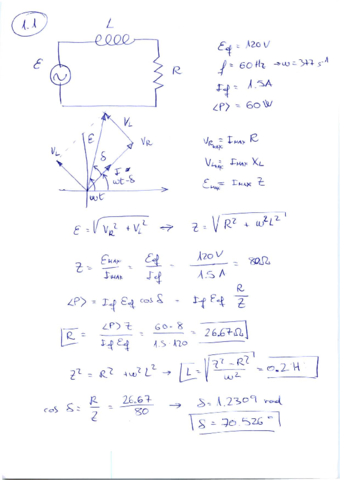 1.1
L
E
R
E_ef = 120V
f = 60Hz → w = 377 s⁻¹
I_ef = 1.5A
⟨P⟩ = 60W
V_L E V_R
V_L δ I
wt-δ
wt
V_Rmax = I_max R
V_Lmax = I_max X_L
E_max = I_max Z
E = √(V_R² + V_L²) → Z = √(R² + w²L²)
Z = E_max/I_max = E_ef/I_ef = 120V/1.5A = 80Ω
⟨P⟩ = I_ef E_ef cos δ = I_ef E_ef R/Z
R = ⟨P⟩Z/(I_ef E_ef) = 60·8/(1.5·120) = 26.67Ω
Z² = R² + w²L² → L = √((Z² - R²)/w²) = 0.2 H
cos δ = R/Z = 26.67/80 → δ = 1.2309 rad
δ = 70.526°